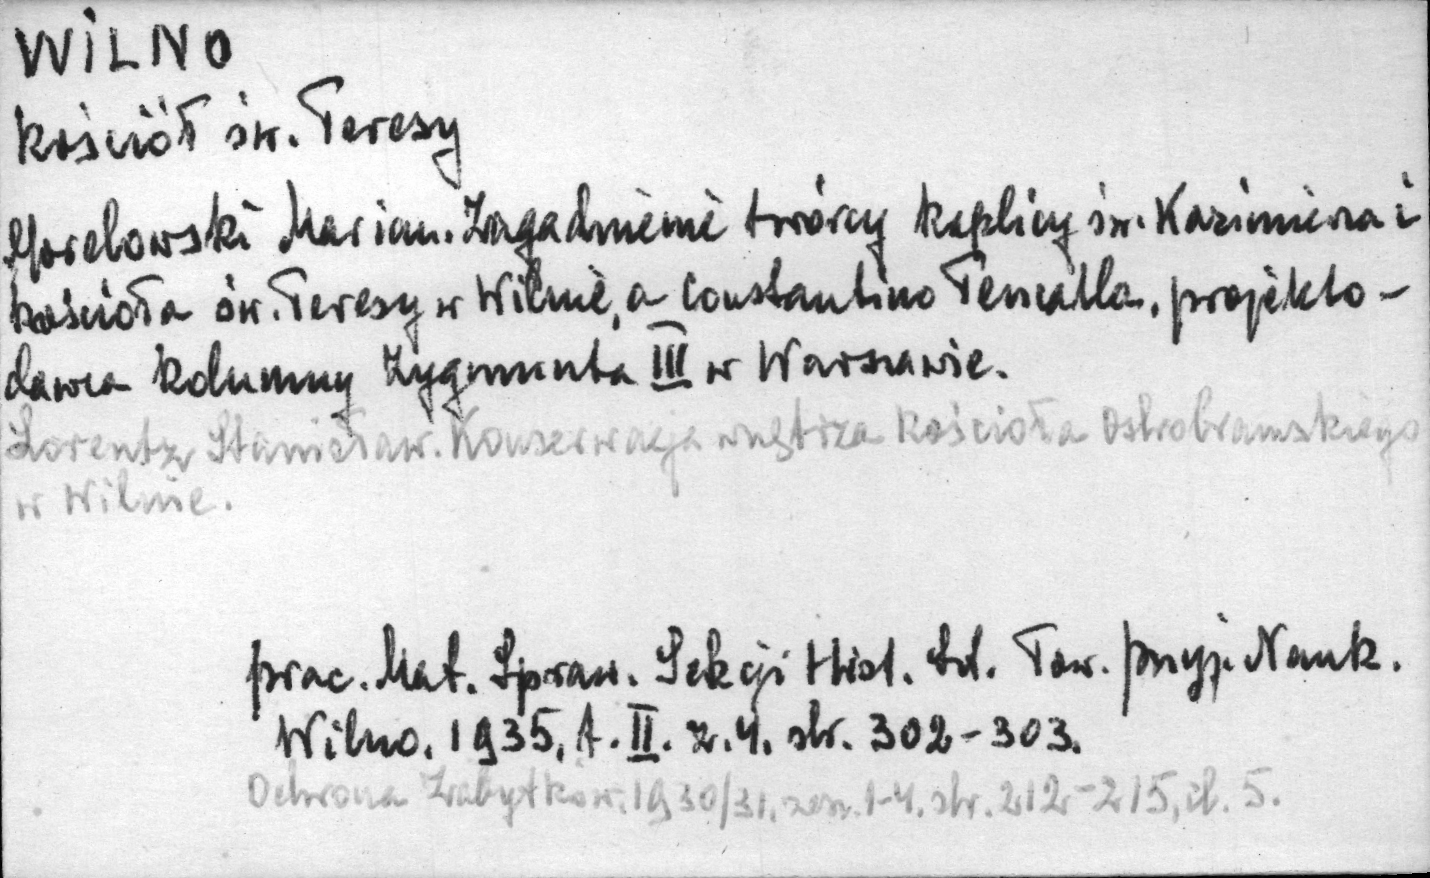 WILNO
kościół św. Teresy
Morelowski Marian. Zagadnienie twórcy kaplicy św. Kazimierza i
kościoła św. Teresy w Wilnie, a Constantino Tencalla, projekto-
dawca kolumny Zygmunta III w Warszawie.
Lorentz Stanisław. Konserwacja wnętrza kościoła Ostrobramskiego
w Wilnie.
prac. Mat. Spraw. Sekcji Hist. Szt. Tow. przyj. Nauk.
Wilno. 1935, t. II. z. 4. str. 302-303.
Ochrona Zabytków. 1930/31, zesz. 1-4. str. 212-215, il. 5.